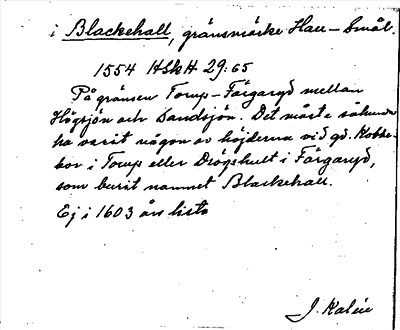 i Blackehall, gränsmärke Hall – Smål.
1554 HSkH 29:65
På gränsen Torup–Färgaryd mellan
Högsjön och Sandsjön. Det måste säkert
ha varit någon av höjderna vid gd.
kor i Torup eller Drögshult i Färgaryd,
som burit namnet Blackehall.
Ej i 1603 års lista
J. Kalén